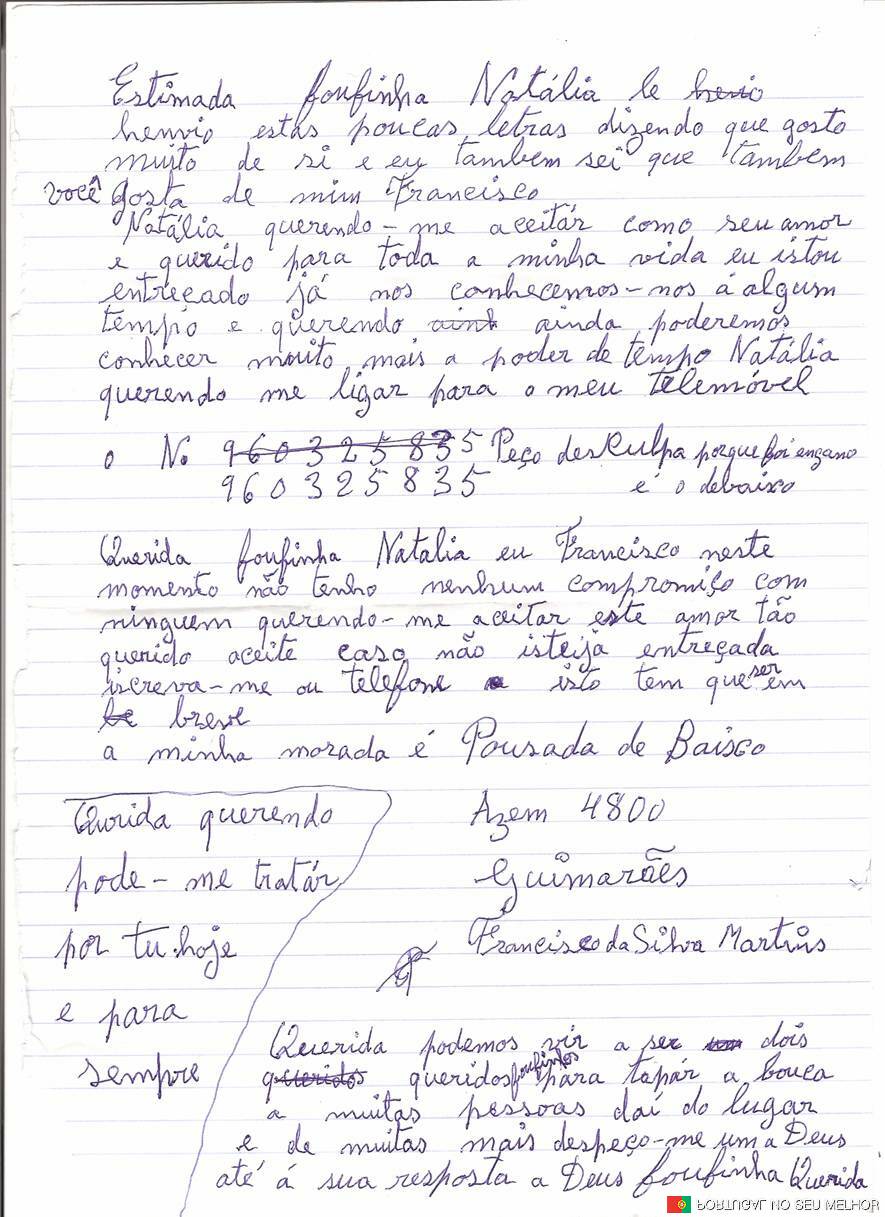 Estimada foufinha Natália le henvio
henvio estas poucas letras dizendo que gosto
muito de si e eu tambem sei que tambem
você gosta de mim Francisco
Natália querendo-me aceitár como seu amor
e querido para toda a minha vida eu istou
entreçado já nos conhecemos-nos á algum
tempo e querendo aint ainda poderemos
conhecer muito mais a poder de tempo Natália
querendo me ligar para o meu telemóvel
o No 960325835 Peço desculpa porque foi engano
960325835 é o debaixo
Querida foufinha Natalia eu Francisco neste
momento não tenho nenhum compromiço com
ninguem querendo-me aceitar este amor tão
querido aceite caso não isteija entreçada
iscreva-me ou telefone isto tem que ser em
breve
a minha morada é Pousada de Baisco
Azem 4800
Guimarães
Francisco da Silva Martins
Qurida querendo
pode-me tratár
por tu hoje
e para
sempre
Querida podemos vir a ser dois
queridos queridos foufinhos para tapár a bouca
a muitas pessoas daí do lugar
e de muitas mais despeço-me um a Deus
até á sua resposta a Deus foufinha Querida
PORTUGAL NO SEU MELHOR